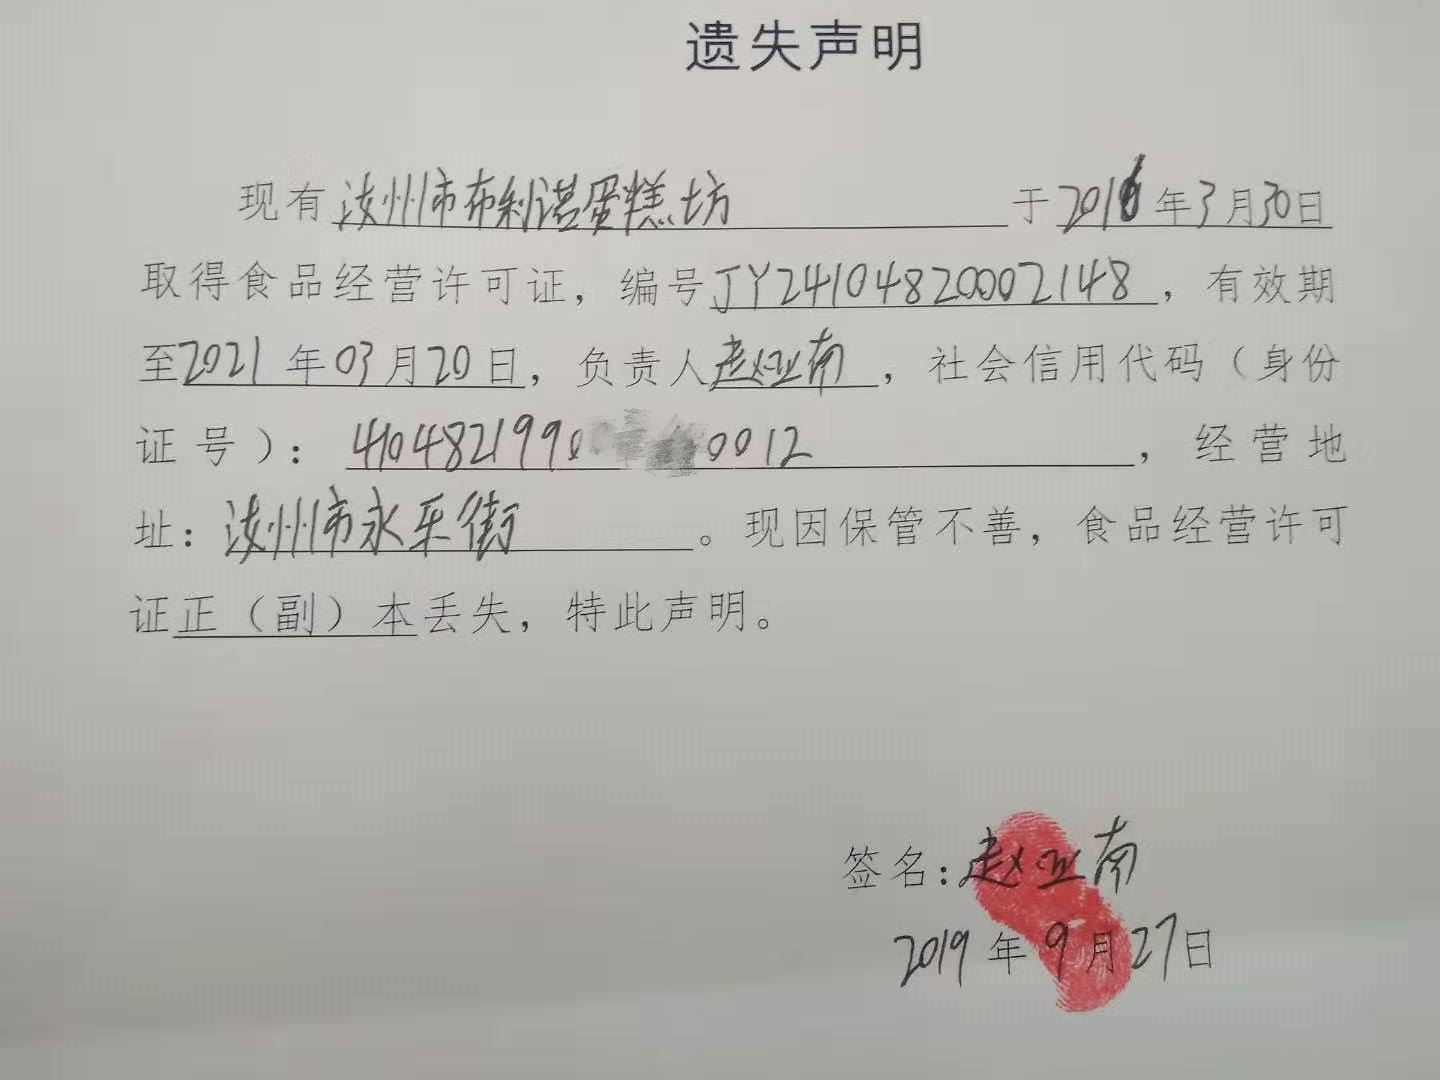 遗失声明
现有汝州市布利诺蛋糕坊于2016年3月30日
取得食品经营许可证，编号JY24104820002148，有效期
至2021年03月20日，负责人赵亚南，社会信用代码（身份
证号）：41048219900012，经营地
址：汝州市永乐街。现因保管不善，食品经营许可
证正（副）本丢失，特此声明。
签名：赵亚南
2019年9月27日